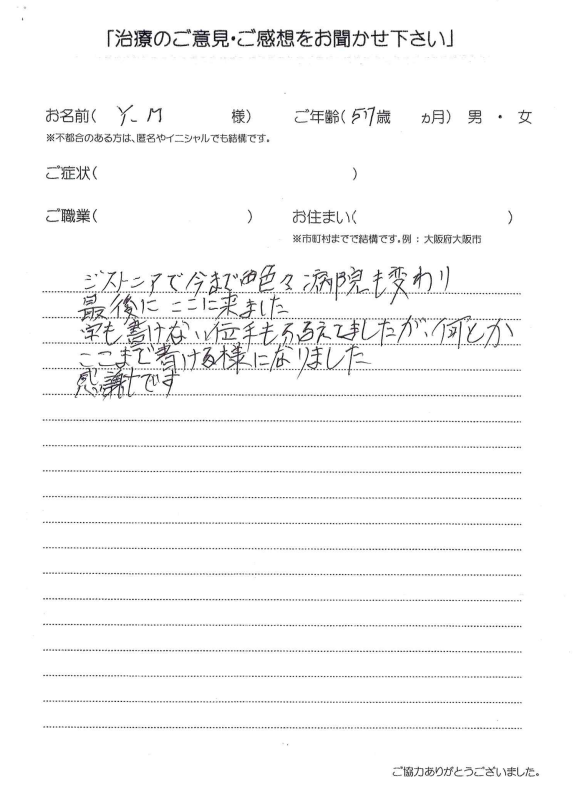 「治療のご意見・ご感想をお聞かせ下さい」
お名前( Y.M 様) ご年齢( 57歳 ヵ月) 男 ・ 女
※不都合のある方は、匿名やイニシャルでも結構です。
ご症状( )
ご職業( ) お住まい( )
※市町村までで結構です。例：大阪府大阪市
ジストニアで今まで色々病院も変わり
最後にここに来ました
字も書けない位手もふるえてましたが、何とか
ここまで書ける様になりました
感謝です
ご協力ありがとうございました。